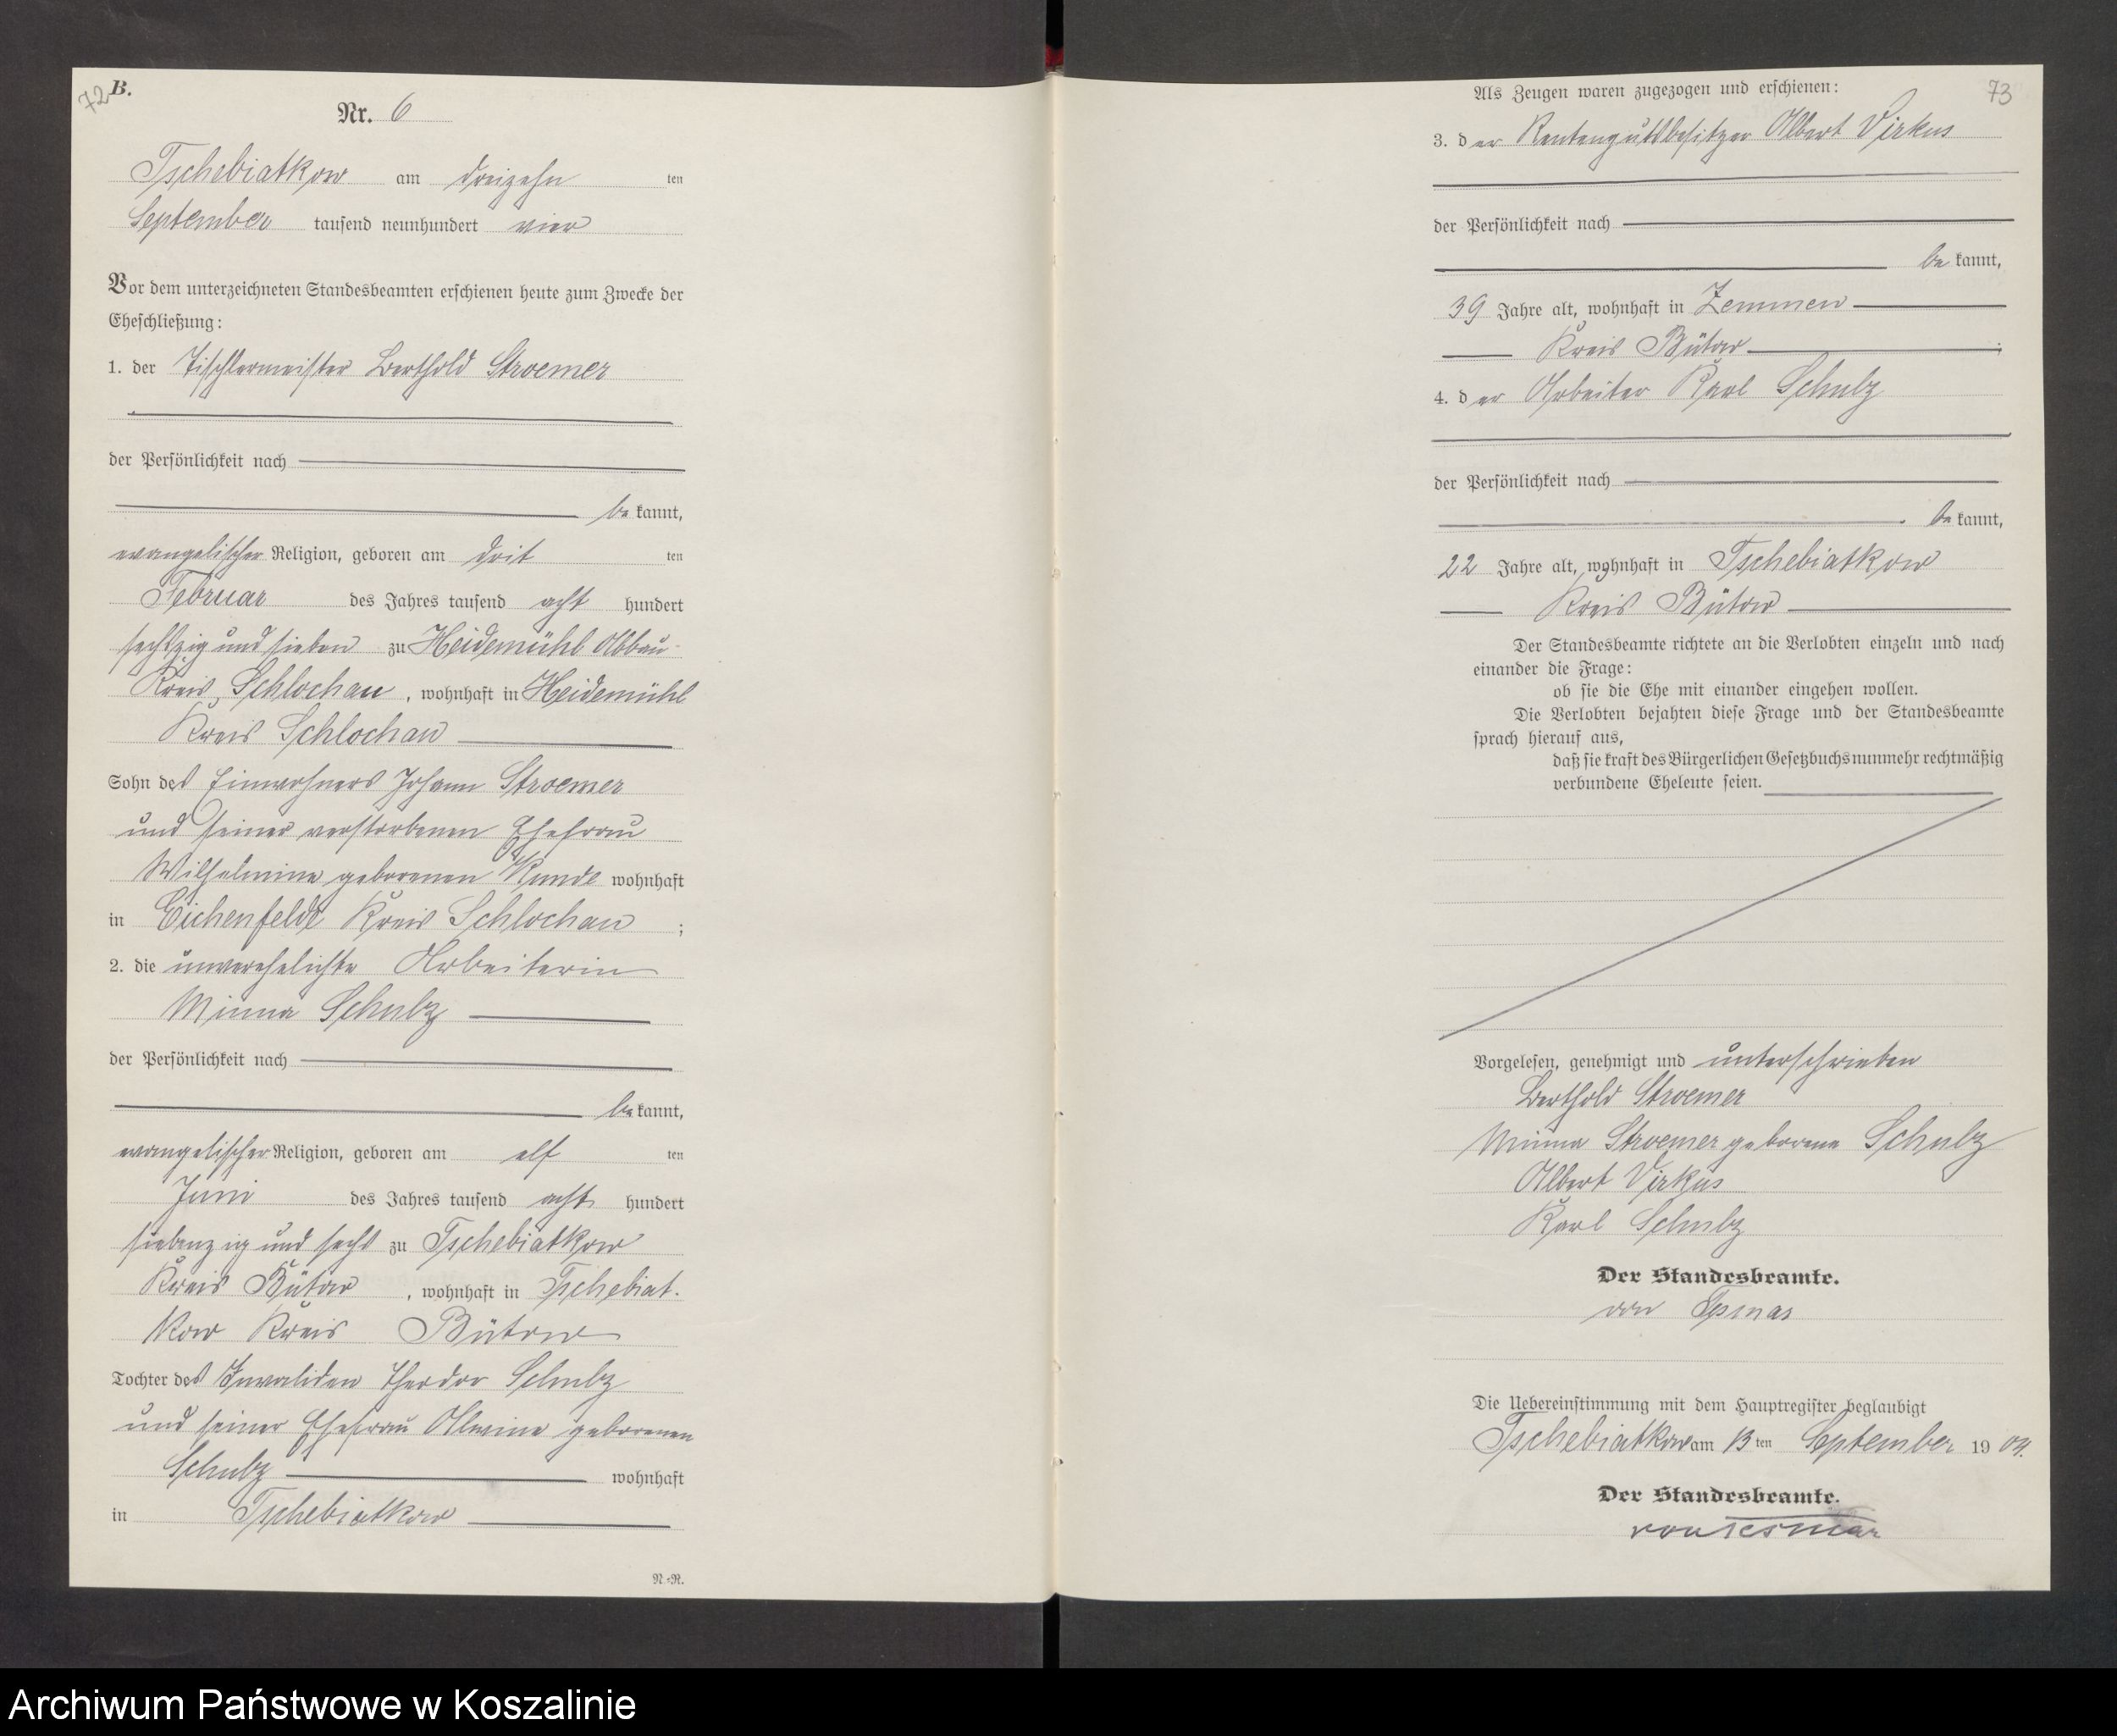 72
B.
Nr. 6
Tschebiatkow am dreizehn ten
September tausend neunhundert vier
Vor dem unterzeichneten Standesbeamten erschienen heute zum Zwecke der
Eheschließung:
1. der Tischlermeister Berthold Stroemer
der Persönlichkeit nach
be kannt,
evangelischer Religion, geboren am drit ten
Februar des Jahres tausend acht hundert
sechszig und sieben zu Heidemühl Abbau
Kreis Schlochau, wohnhaft in Heidemühl
Kreis Schlochau
Sohn des Einwohners Johann Stroemer
und seiner verstorbenen Ehefrau
Wilhelmine geborenen Kunde wohnhaft
in Eichenfelde Kreis Schlochau ;
2. die unverehelichte Arbeiterin
Minna Schulz
der Persönlichkeit nach
be kannt,
evangelischer Religion, geboren am elf ten
Juni des Jahres tausend acht hundert
siebenzig und sechs zu Tschebiatkow
Kreis Bütow, wohnhaft in Tschebiat-
kow Kreis Bütow
Tochter des Invaliden Theodor Schulz
und seiner Ehefrau Alwine geborenen
Schulz wohnhaft
in Tschebiatkow
N.-R.
73
Als Zeugen waren zugezogen und erschienen:
3. der Rentengutsbesitzer Albert Virkus
der Persönlichkeit nach
be kannt,
39 Jahre alt, wohnhaft in Zemmen
Kreis Bütow ;
4. der Arbeiter Karl Schulz
der Persönlichkeit nach
be kannt,
22 Jahre alt, wohnhaft in Tschebiatkow
Kreis Bütow
Der Standesbeamte richtete an die Verlobten einzeln und nach
einander die Frage:
ob sie die Ehe mit einander eingehen wollen.
Die Verlobten bejahten diese Frage und der Standesbeamte
sprach hierauf aus,
daß sie kraft des Bürgerlichen Gesetzbuchs nunmehr rechtmäßig
verbundene Eheleute seien.
Vorgelesen, genehmigt und unterschrieben
Berthold Stroemer
Minna Stroemer geborene Schulz
Albert Virkus
Karl Schulz
Der Standesbeamte.
von
Die Uebereinstimmung mit dem Hauptregister beglaubigt
Tschebiatkow am 13 ten September 19 04.
Der Standesbeamte.
von Tesmar
Archiwum Państwowe w Koszalinie